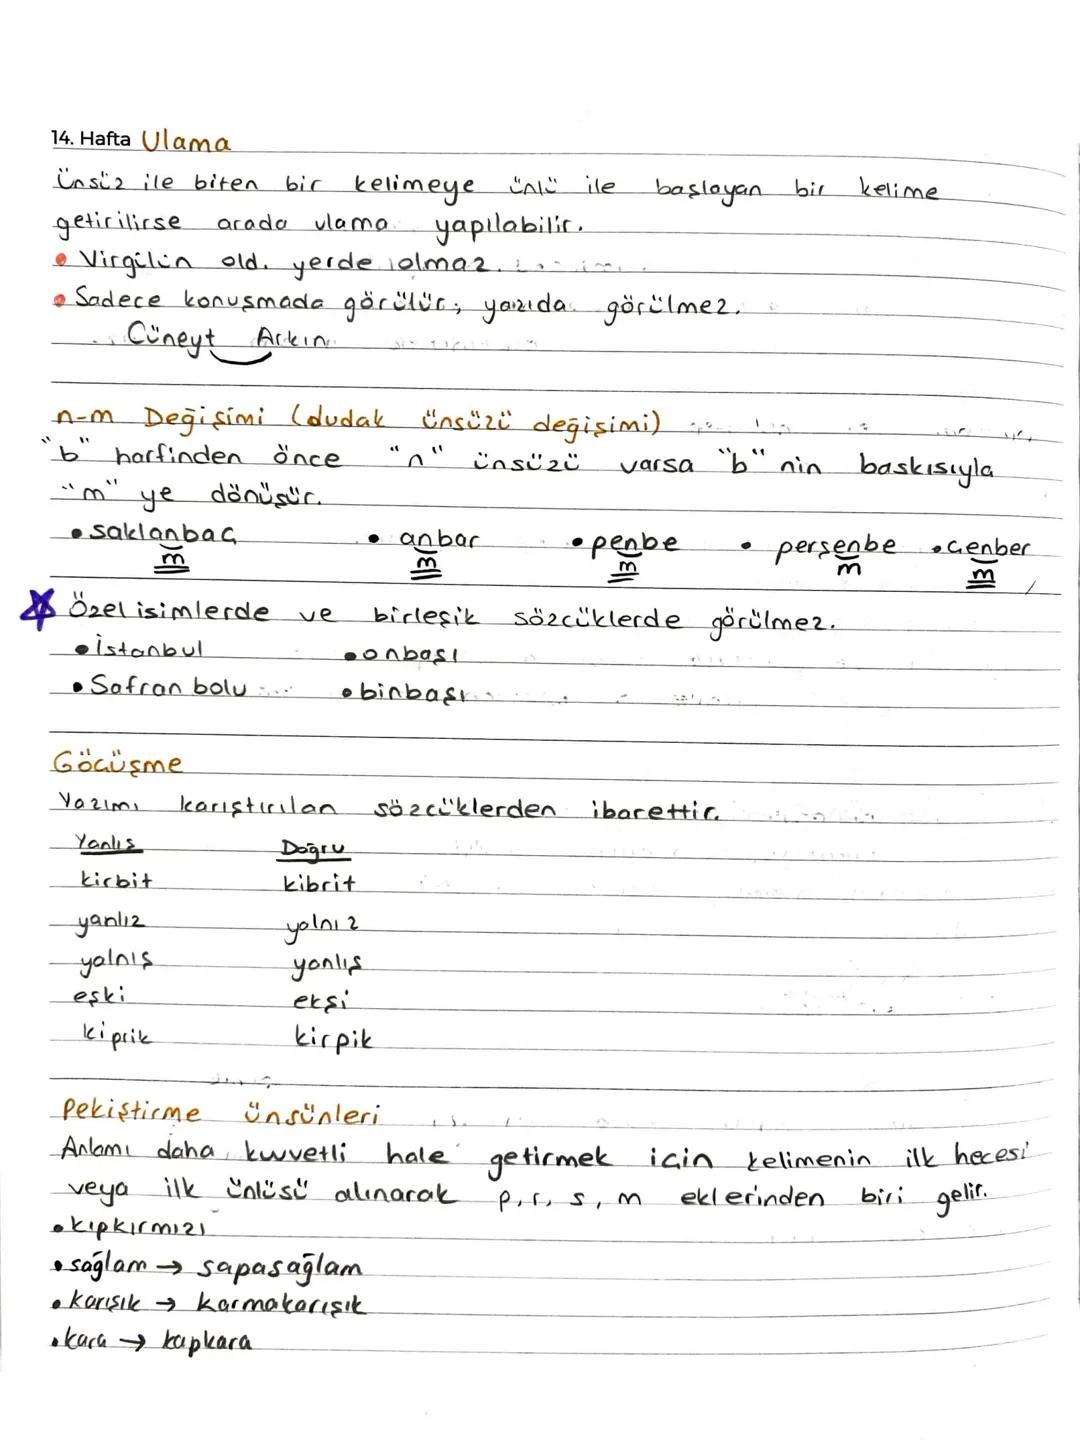 14. Hafta Ulama
Ünsüz ile biten bir kelimeye ünlü ile başlayan bir kelime
getirilirse arada ulama yapılabilir.
• Virgülün old. yerde olmaz.
• Sadece konuşmada görülür; yazıda görülmez.
Cüneyt Arkın
n-m Değişimi (dudak ünsüzü değişimi)
"b" harfinden önce "n" ünsüzü varsa "b" nin baskısıyla
"m" ye dönüşür.
• saklanbaç • anbar • penbe • perşenbe • çenber
m m m m m
Özel isimlerde ve birleşik sözcüklerde görülmez.
• İstanbul • onbaşı
• Safranbolu • binbaşı
Göçüşme
Yazımı karıştırılan sözcüklerden ibarettir.
Yanlış Doğru
kirbit kibrit
yanlız yalnız
yalnış yanlış
eşki ekşi
kiprik kirpik
Pekiştirme ünsünleri
Anlamı daha kuvvetli hale getirmek için kelimenin ilk hecesi
veya ilk ünlüsü alınarak p, r, s, m eklerinden biri gelir.
• kıpkırmızı
• sağlam → sapasağlam
• karışık → karmakarışık
• kara → kapkara